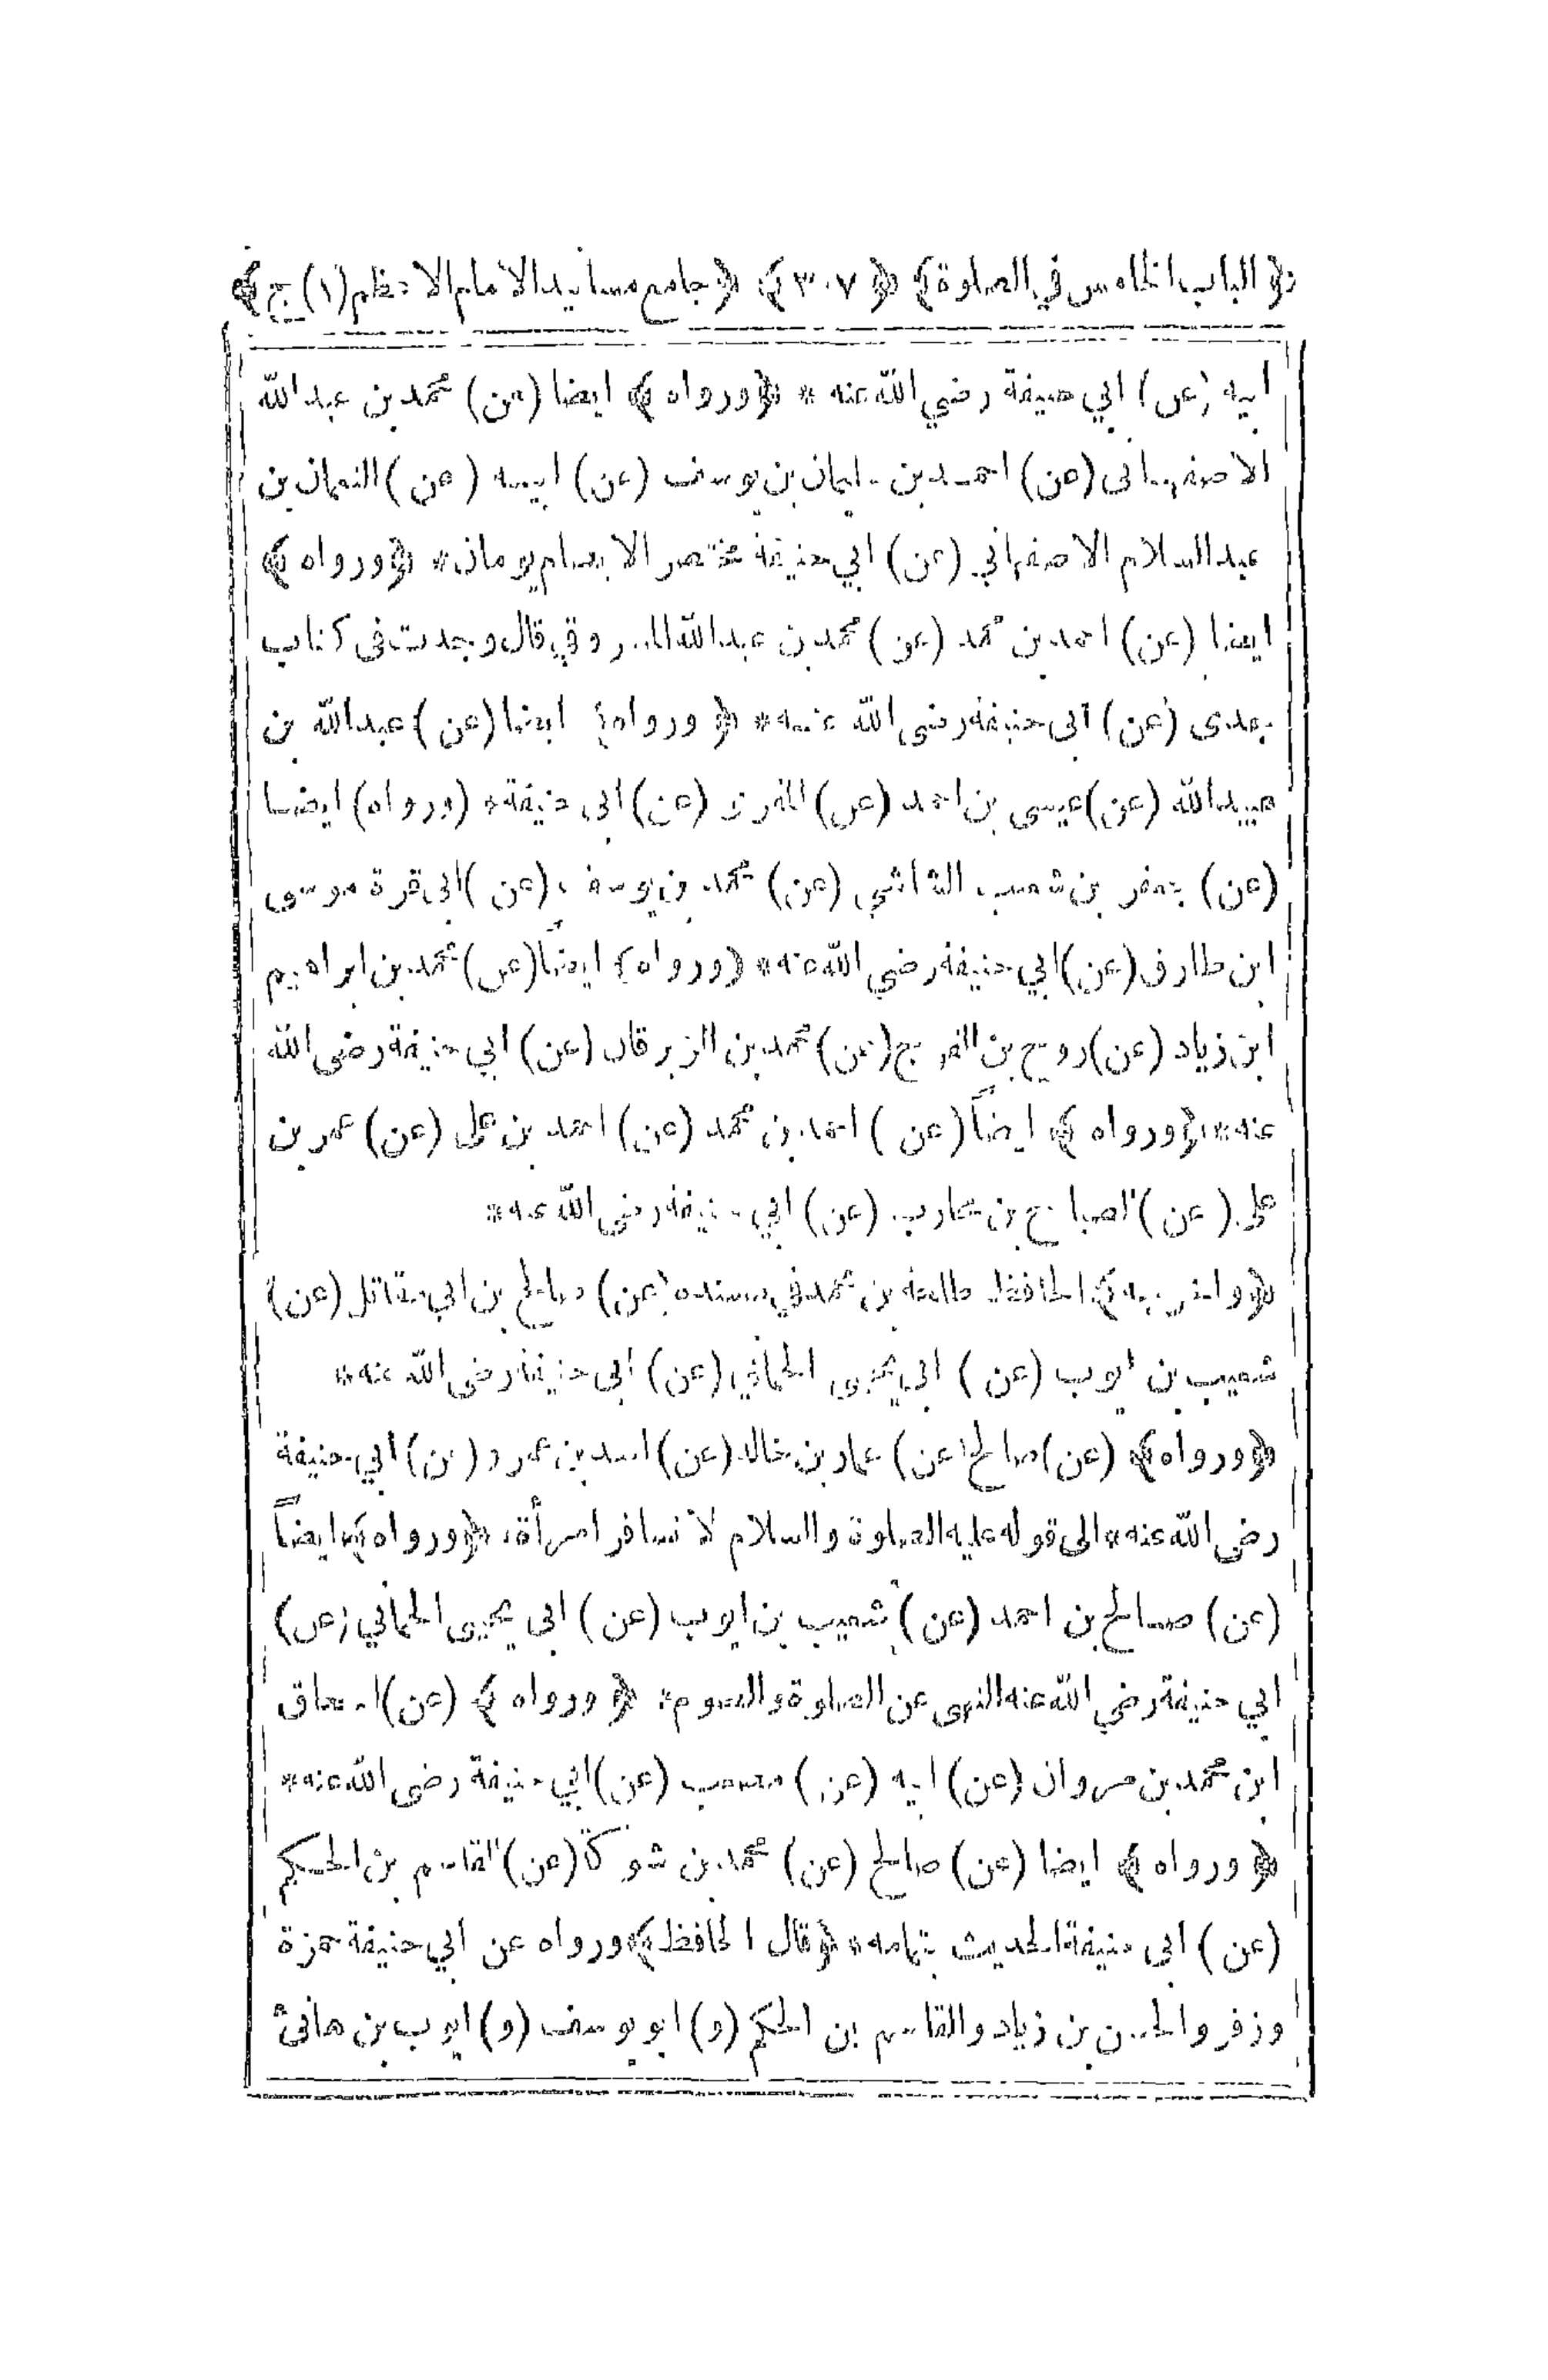 ﴿الباب الخامس في الصلوة﴾ ﴿٣٠٧﴾ ﴿جامع مسانيد الامام الاعظم (١) ج﴾
ابيه (عن) ابي حنيفة رضي الله عنه * ﴿ورواه﴾ ايضا (عن) محمد بن عبد الله
الاصفهانى (عن) احمد بن سليمان بن يوسف (عن) ابيه (عن) النعمان بن
عبد السلام الاصفهاني (عن) ابي حنيفة مختصر الا يصام يومان * ﴿ورواه﴾
ايضا (عن) احمد بن محمد (عن) محمد بن عبد الله المسروقي قال وجدت فى كتاب
جدى (عن) ابى حنيفة رضى الله عنه * ﴿ورواه﴾ ايضا (عن) عبد الله بن
عبيد الله (عن) عيسى بن احمد (عن) المقرئ (عن) ابى حنيفة * (ورواه) ايضا
(عن) جعفر بن شعيب الشاشي (عن) محمد بن يوسف (عن) ابى قرة موسى
ابن طارق (عن) ابي حنيفة رضي الله عنه * ﴿ورواه﴾ ايضاً (عن) محمد بن ابراهيم
ابن زياد (عن) روح بن الفرج (عن) محمد بن الزبرقان (عن) ابي حنيفة رضى الله
عنه * ﴿ورواه﴾ ايضاً (عن) احمد بن محمد (عن) احمد بن على (عن) عمر بن
على (عن) الصباح بن محارب (عن) ابي حنيفة رضي الله عنه *
﴿واخرجه﴾ الحافظ طلحة بن محمد في مسنده (عن) صالح بن ابي مقاتل (عن)
شعيب بن ايوب (عن) ابى يحيى الحماني (عن) ابى حنيفة رضى الله عنه *
﴿ورواه﴾ (عن) صالح (عن) عمار بن خالد (عن) اسد بن عمرو (عن) ابي حنيفة
رضى الله عنه * الى قوله عليه الصلوة والسلام لا تسافر امرأة * ﴿ورواه﴾ ايضاً
(عن) صالح بن احمد (عن) شعيب بن ايوب (عن) ابى يحيى الحماني (عن)
ابي حنيفة رضي الله عنه النهى عن الصلوة والصوم * ﴿ورواه﴾ (عن) اسحاق
ابن محمد بن مروان (عن) ابيه (عن) مصعب (عن) ابي حنيفة رضى الله عنه *
﴿ورواه﴾ ايضا (عن) صالح (عن) محمد بن شوكة (عن) القاسم بن الحكم
(عن) ابى حنيفة الحديث بتمامه * ﴿قال الحافظ﴾ ورواه عن ابي حنيفة حمزة
وزفر والحسن بن زياد والقاسم بن الحكم (و) ابو يوسف (و) ايوب بن هانئ